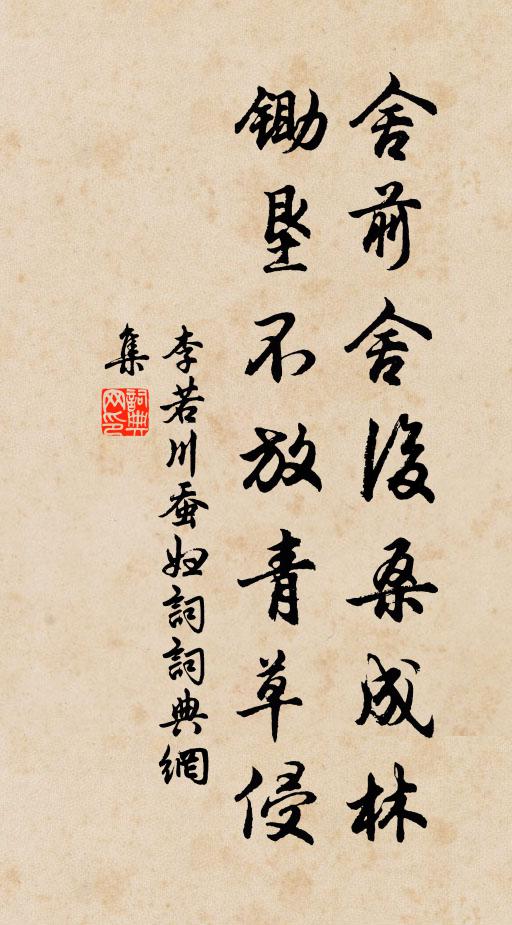 舍前舍後桑成林
鋤垦不放青草侵
李若川蚕妇詞詞典網
集
詞典网印